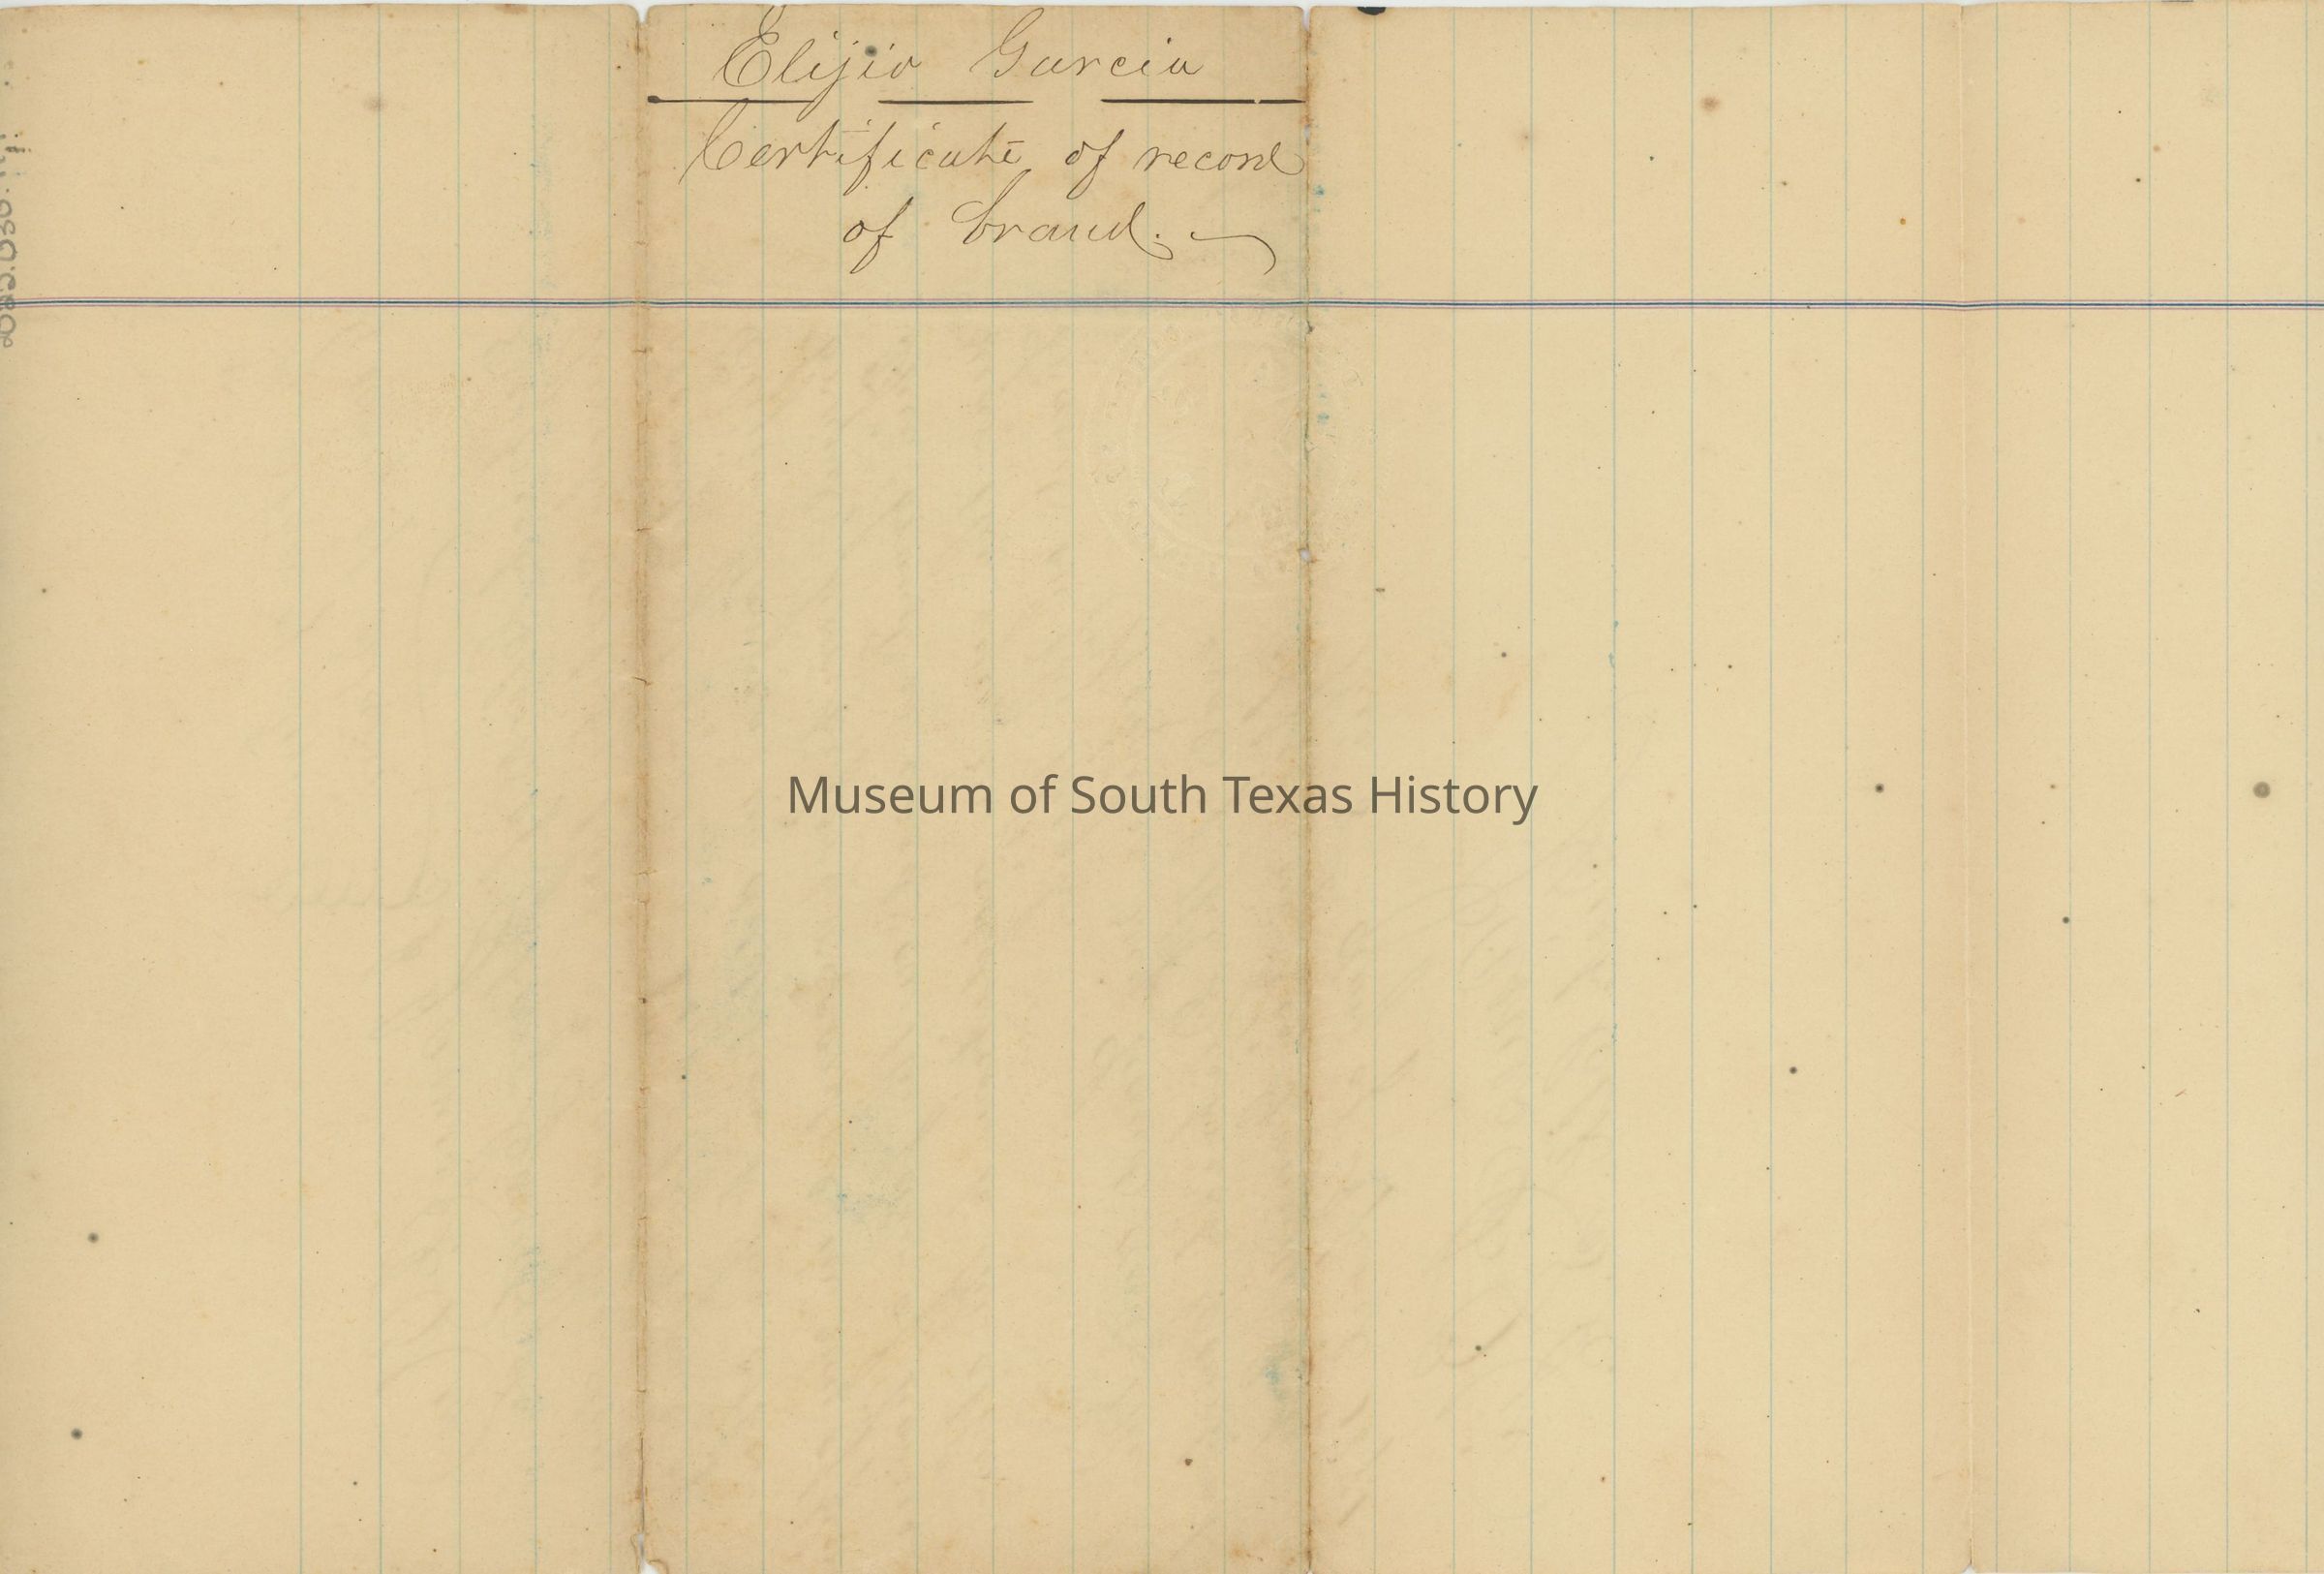 Elijio Garcia
Certificate of record
of brand.
Museum of South Texas History